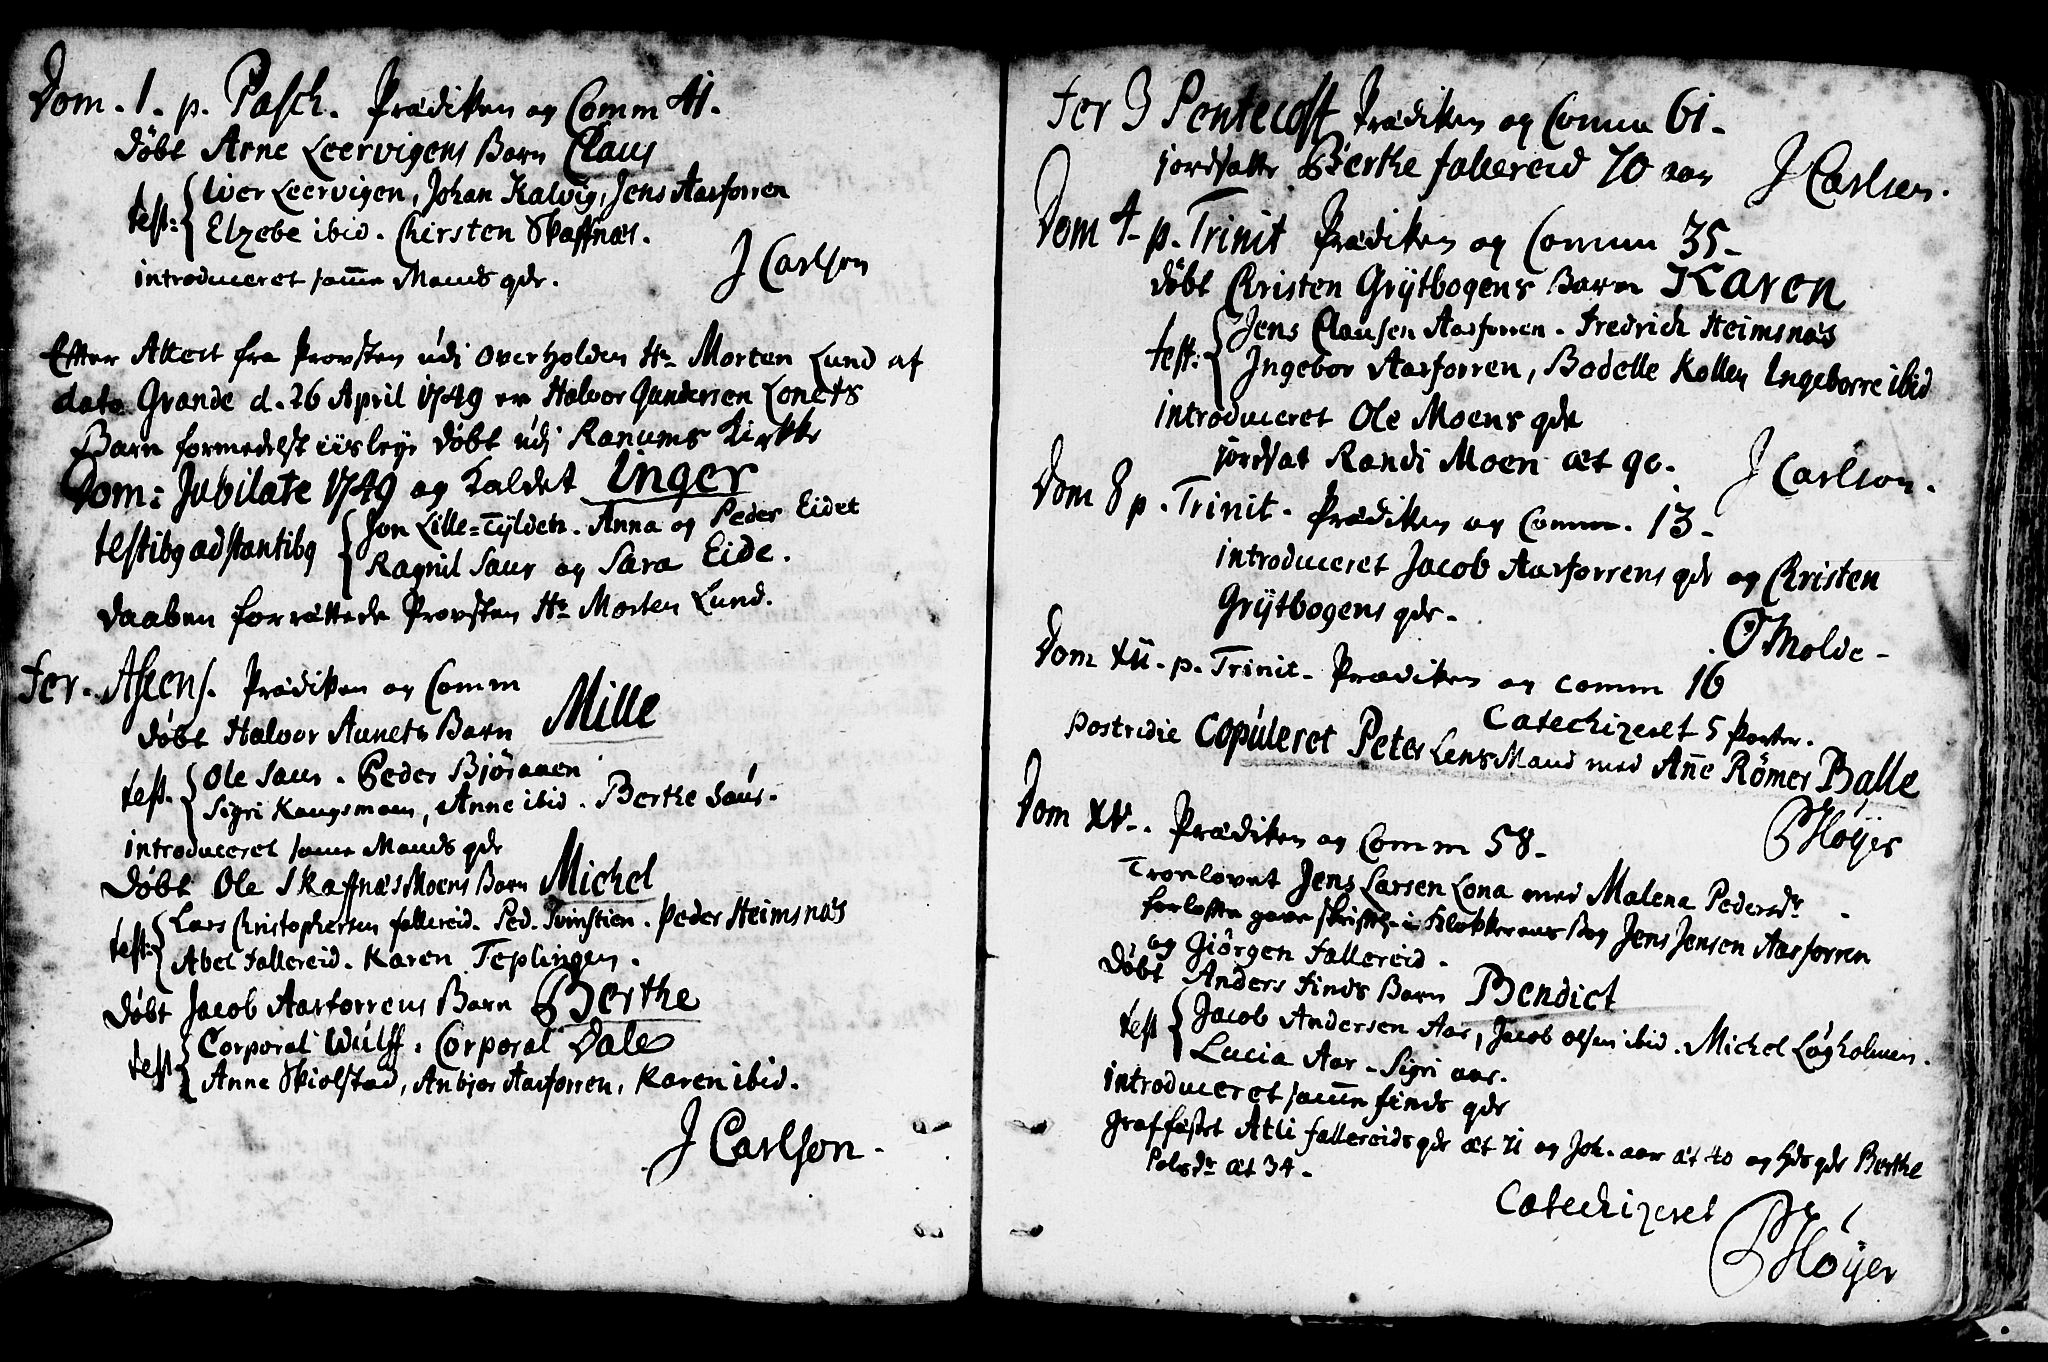 Dom. 1. p. Pasch. Prædiken og Comm 41.
døbt Arne Leervigens Barn Claus
test: Iver Leervigen, Johan Kalvig, Jens Aasforren
Elzebe ibid. Chirsten Skaffnæs.
introduceret samme Mands qdr.
J Carlson
Efter Attest fra Provsten udi Overholden Hr Morten Lund af
dato Grande d. 26 April 1749 er Halvor Gundersen Lonets
Barn formedelst iisleye døbt udi Ranums Kirkke
Dom: Jubilate 1749 og Kaldet Inger
testibq adstantibq Jon Lille=Tylden. Anna og Peder Eidet
Ragnil Saur og Sara Eide.
Daaben forrættede Provsten Hr Morten Lund.
Fer. Ascens. Prædiken og Comm
døbt Halvor Aunets Barn Mille
test. Ole Saur. Peder Bjøraaen
Sigri Kongsmoen, Anne ibid. Berthe Saur.
introduceret samme Mands qdr
Døbt Ole SkaffnæsMoens Barn Michel
test: Lars Christophersen fallereid. Ped. Peder Heimsnæs
Abel Fallereid. Karen Teplingen.
Døbt Jacob Aasforrens Barn Berthe
test Corporal Wulff. Corporal Dale
Anne Skiolstad, Anbjør Aasforren, Karen ibid.
J Carlson.
Fer 3 Pentecost Prædiken og Comm 61.
jordsatte Berthe fallereid 70 aar
J Carlsen.
Dom 4. p. Trinit Prædiken og Comm 35.
døbt Christen Grytbogens Barn Karen
test: Jens Clausen Aasforren. Fredrich Heimsnæs
Ingebor Aasforren, Bodelle Kollen Ingeborre ibid
introduceret Ole Moens qdr
jordsat Randi Moen æt 90.
J Carlson.
Dom 8 p. Trinit. Prædiken og Comm. 13.
introduceret Jacob Aasforrens qdr og Christen
Grytbogens qdr.
O Molde
Dom XII. p. Trinit. Prædiken og comm 16
Catechizeret 5 Parter.
Postridie Copuleret Peter LensMand med Anne Römer Balle
P Høyer
Dom XV. Prædiken og Comm 58.
Troelovet Jens Larsen Lona med Malena Pedersdr
forløfte gave skriftl. i Klokkerens Bog Jens Jensen Aasforren
og Giörgen Fallereid.
Døbt Anders Finds Barn Bendict
test Jacob Andersen Aar, Jacob olsen ibid. Michel Løgholmen.
Lucia Aar. Sigri aar.
introduceret samme Finds qdr
Graffæstet Atli fallereids qdr æt 71 og Joh. aar æt 40 og hds qdr Berthe
Polsdr æt 34.
Catechizeret
P Høyer